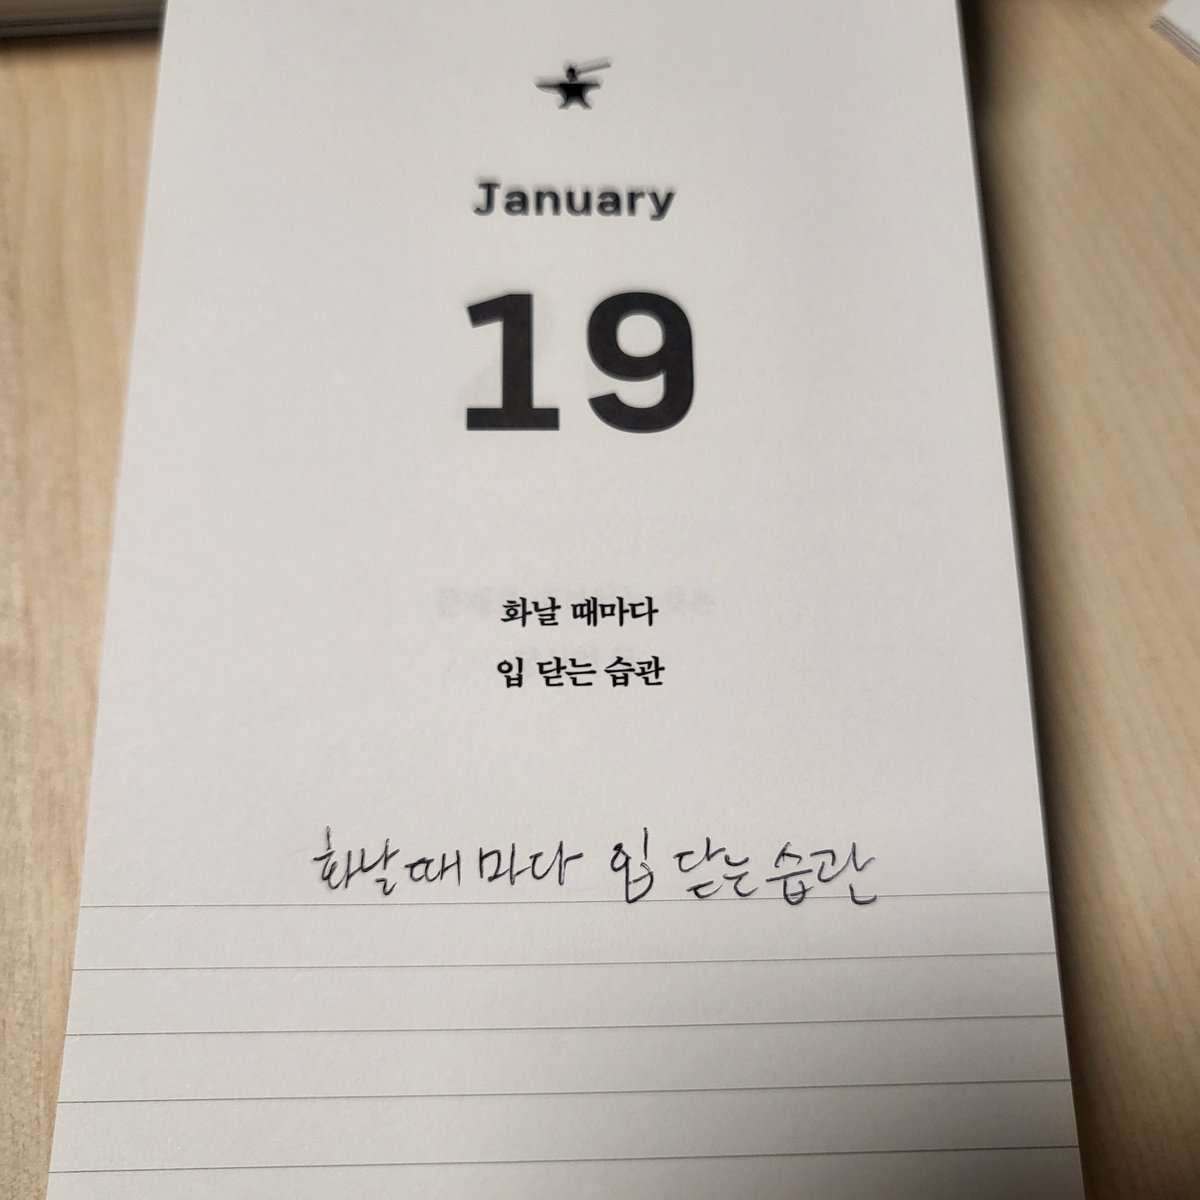 January
19
화날 때마다
입 닫는 습관
화날 때 마다 입 닫는 습관